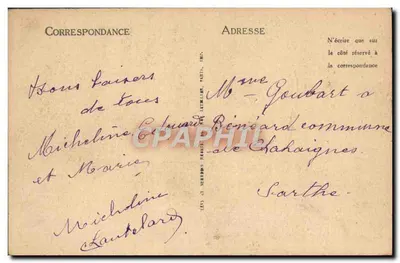 CORRESPONDANCE
ADRESSE
N'écrire que sur
le côté réservé à
la correspondance
de tous
Micheline Edouard
et Marie
Micheline
Mme Goubart a
Bénéard commune
de Chahaignes
Sarthe
CPAPHIL